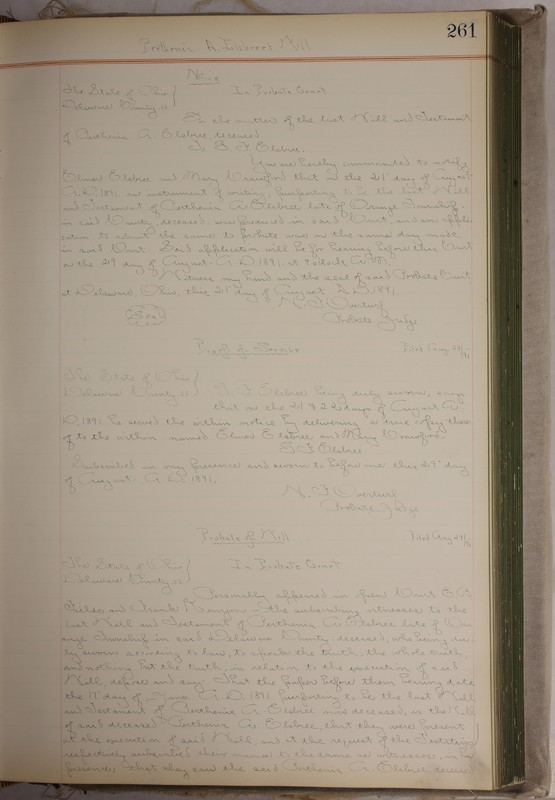 261
Parthenia A. Elsbree's Will
Notice
The State of Ohio } In Probate Court
Delaware County ss
In the matter of the last Will and Testament
of Parthenia A. Elsbree deceased.
To G. F. Elsbree.
You are hereby commanded to notify
Elmer Elsbree and Mary Crawford that on the 21st day of August
A.D. 1891 an instrument of writing, purporting to be the last Will
and Testament of Parthenia A. Elsbree late of Orange Township
in said County, deceased, was produced in said Court, and an appli-
cation to admit the same to probate was on the same day made
in said Court. Said application will be for hearing before this Court
on the 29 day of August A.D. 1891, at 9 o'clock A.M.
Witness my hand and the seal of said Probate Court
at Delaware, Ohio, this 21st day of August A.D. 1891.
(Seal) N. F. Overturf
Probate Judge
Proof of Service Filed Aug 29/91
The State of Ohio }
Delaware County ss } G. F. Elsbree being duly sworn, says
that on the 21 & 22 days of August A.
D. 1891 he served the within notice by delivering a true copy there-
of to the within named Elmer Elsbree and Mary Crawford
G. F. Elsbree
Subscribed in my presence and sworn to before me this 29th day
of August A.D. 1891.
N. F. Overturf
Probate Judge
Probate of Will Filed Aug 29/91
The State of Ohio } In Probate Court
Delaware County ss
Personally appeared in open Court
and Frank the subscribing witnesses to the
last Will and Testament of Parthenia A. Elsbree late of Or-
ange Township in said Delaware County deceased, who being du-
ly sworn according to law, to speak the truth, the whole truth
and nothing but the truth, in relation to the execution of said
Will, depose and say: That the paper before them bearing date
the 17 day of June A.D. 1891 purporting to be the last Will
and Testament of Parthenia A. Elsbree now deceased, is the Will
of said deceased Parthenia A. Elsbree, that they were present
at the execution of said Will, and at the request of the Testatrix
respectively subscribed their names to the same as witnesses, in her
presence; that they saw the said Parthenia A. Elsbree deceased